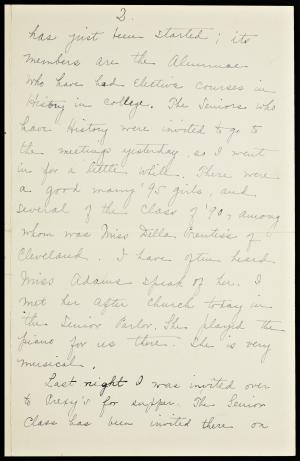 2.
has just been started; its
members are the Alumnae
who have had Elective courses in
History in college. The Seniors who
have History were invited to go to
the meetings yesterday, so I went
in for a little while. There were
a good many '95 girls, and
several of the class of '90, among
whom was Miss Dilla Prentiss of
Cleveland. I have often heard
Miss Adams speak of her. I
met her after church today in
the Senior Parlor. She played the
piano for us there. She is very
musical.
Last night I was invited over
to Prexy's for supper. The Senior
Class has been invited there on